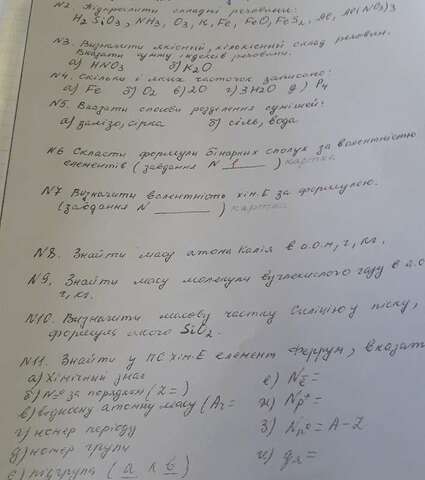 N2. Підкреслити складні речовини:
H2SiO3, NH3, O3, K, Fe, FeO, FeS2, Al, Al(NO3)3
N3. Визначити якісний, кількісний склад речовин.
Вказати суму індексів речовини.
а) HNO3 б) K2O
N4. Скільки і яких частинок записано:
а) Fe б) O2 в) 2O г) 3H2O д) P4
N5. Вказати способи розділення сумішей:
а) залізо, сірка б) сіль, вода
N6 Скласти формули бінарних сполук за валентністю
елементів (завдання N 1) картка
N7 Визначити валентність хім.Е за формулою.
(завдання N ) картка
N8. Знайти масу атома Калія в а.о.м, г, кг.
N9. Знайти масу молекули вуглекислого газу в а.о
г, кг.
N10. Визначити масову частку Силіцію у піску,
формула якого SiO2.
N11. Знайти у ПС хім.Е елемент Феррум, вказат
а) Хімічний знак
б) № за порядком (Z = )
в) відносну атомну масу (Ar =
г) номер періоду
д) номер групи
е) підгрупа (а к б)
є) Nē =
ж) Np+ =
з) Nn0 = A - Z
и) gя =